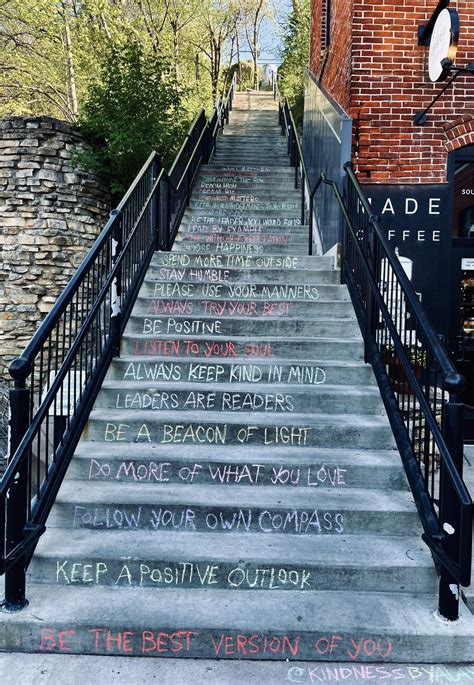 YOU MATTER
REACH HIGH
DREAM BIG
MATTERS
BE THE LEADER YOU WOULD FOLLOW
LEAD BY EXAMPLE
CHOOSE HAPPINESS
SPEND MORE TIME OUTSIDE
STAY HUMBLE
PLEASE USE YOUR MANNERS
ALWAYS TRY YOUR BEST
BE POSITIVE
LISTEN TO YOUR SOUL
ALWAYS KEEP KIND IN MIND
LEADERS ARE READERS
BE A BEACON OF LIGHT
DO MORE OF WHAT YOU LOVE
FOLLOW YOUR OWN COMPASS
KEEP A POSITIVE OUTLOOK
BE THE BEST VERSION OF YOU
@KINDNESSBY
JADE
COFFEE